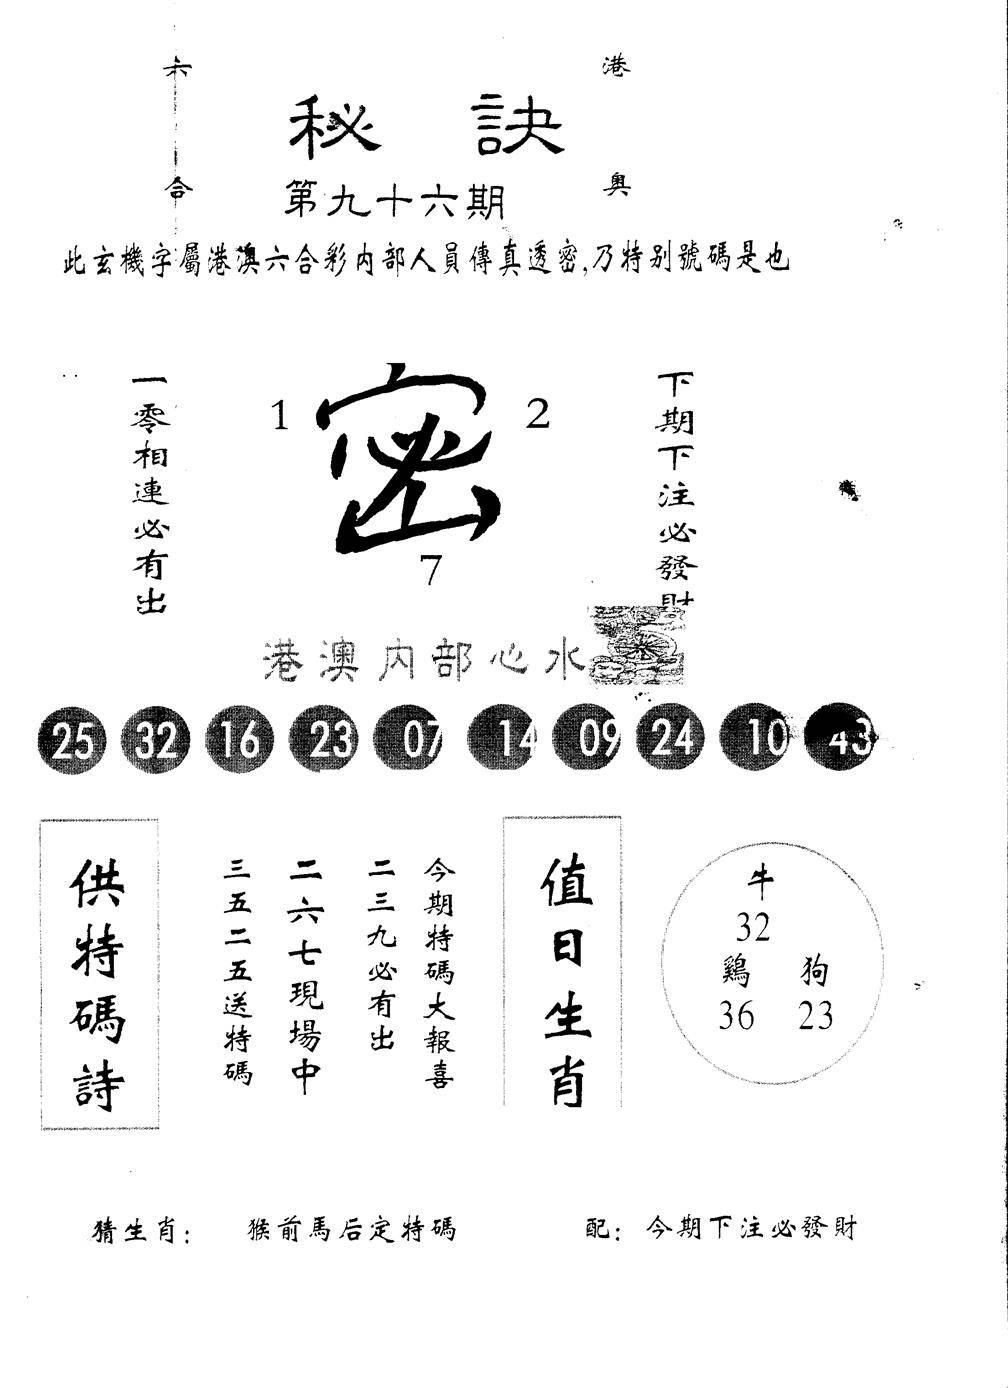 六合
港奥
秘訣
第九十六期
此玄機字屬港澳六合彩内部人員傳真透密,乃特别號碼是也
一零相連必有出
1
密
2
7
下期下注必發財
港澳内部心水
25 32 16 23 07 14 09 24 10 43
供特碼詩
今期特碼大報喜
二三九必有出
二六七現場中
三五二五送特碼
值日生肖
牛
32
鷄 狗
36 23
猜生肖: 猴前馬后定特碼
配: 今期下注必發財